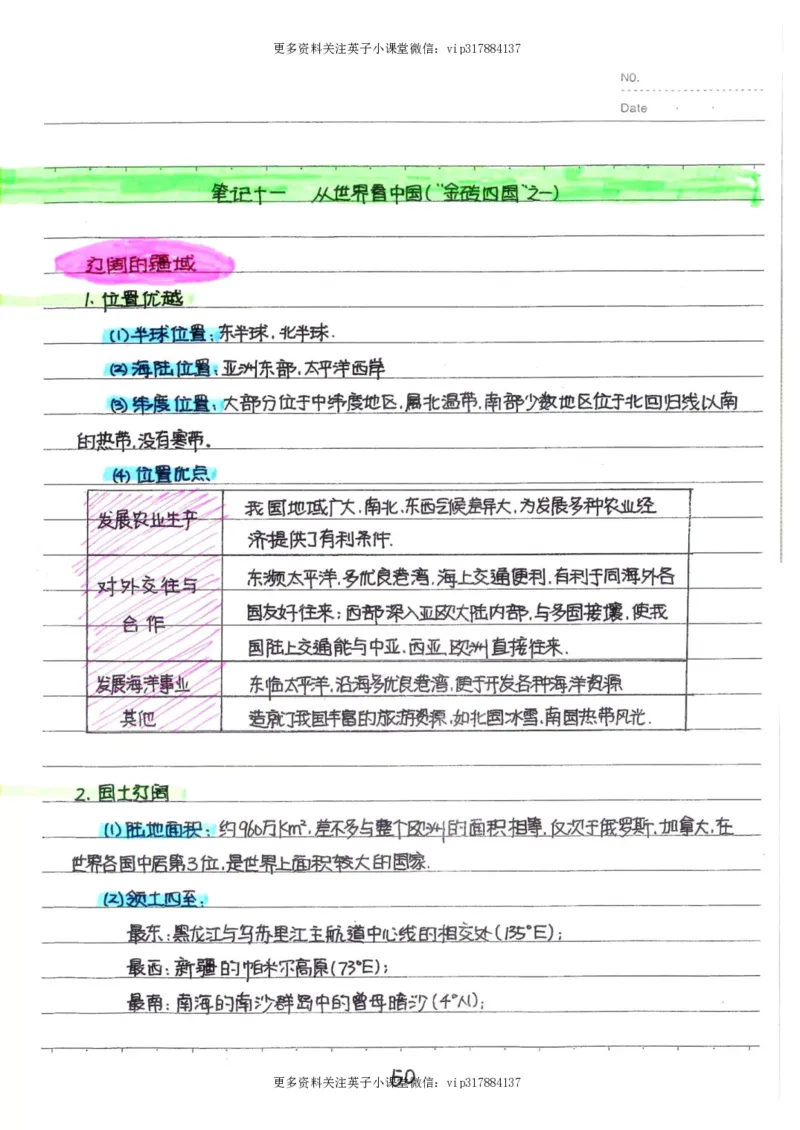 更多资料关注英子小课堂微信：vip317884137
NO.
Date
笔记十一 从世界看中国("金砖四国"之一)
辽阔的疆域
1. 位置优越
(1)半球位置：东半球，北半球.
(2)海陆位置：亚洲东部，太平洋西岸
(3)纬度位置：大部分位于中纬度地区，属北温带，南部少数地区位于北回归线以南
的热带，没有寒带。
(4)位置优点
发展农业生产
我国地域广大，南北、东西气候差异大，为发展多种农业经
济提供了有利条件.
对外交往与
合作
东濒太平洋，多优良港湾，海上交通便利，有利于同海外各
国友好往来；西部深入亚欧大陆内部，与多国接壤，使我
国陆上交通能与中亚、西亚、欧洲直接往来.
发展海洋事业
东临太平洋，沿海多优良港湾，便于开发各种海洋资源
其他
造就了我国丰富的旅游资源，如北国冰雪，南国热带风光.
2. 国土辽阔
(1)陆地面积：约960万km²，差不多与整个欧洲的面积相等，仅次于俄罗斯、加拿大，在
世界各国中居第3位，是世界上面积较大的国家.
(2)领土四至：
最东：黑龙江与乌苏里江主航道中心线的相交处(135°E)；
最西：新疆的帕米尔高原(73°E)；
最南：南海的南沙群岛中的曾母暗沙(4°N)；
50
更多资料关注英子小课堂微信：vip317884137